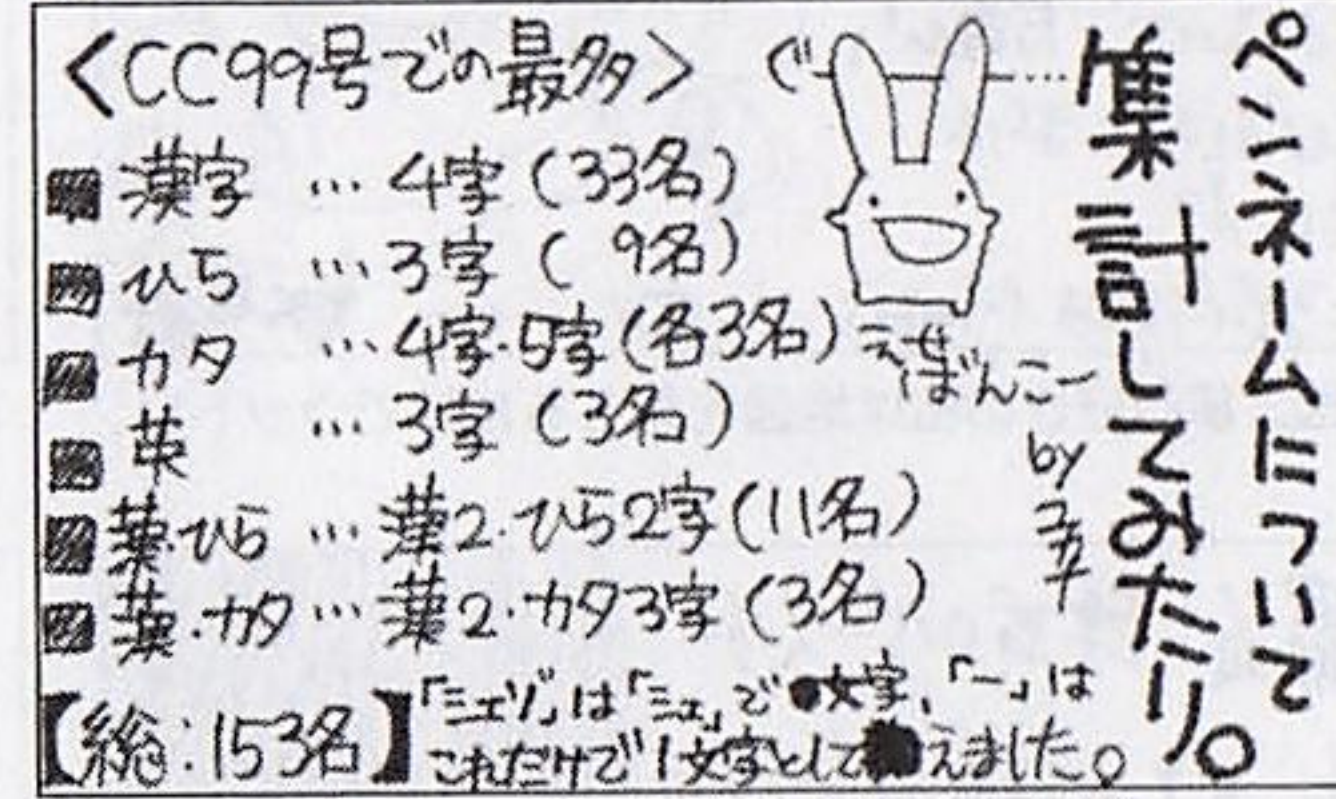 ペンネームについて
集計してみたり。
<CC99号での最多>
漢字 … 4字 (33名)
ひら … 3字 ( 9名)
カタ … 4字・5字 (各3名)
英 … 3字 (3名)
漢・ひら … 漢2・ひら2字 (11名)
漢・カタ … 漢2・カタ3字 (3名)
【総:153名】
「ミェゾ」は「ミェ」で 文字、「ー」は
これだけで1文字として えました。
ぐー…
えせばんこー
by